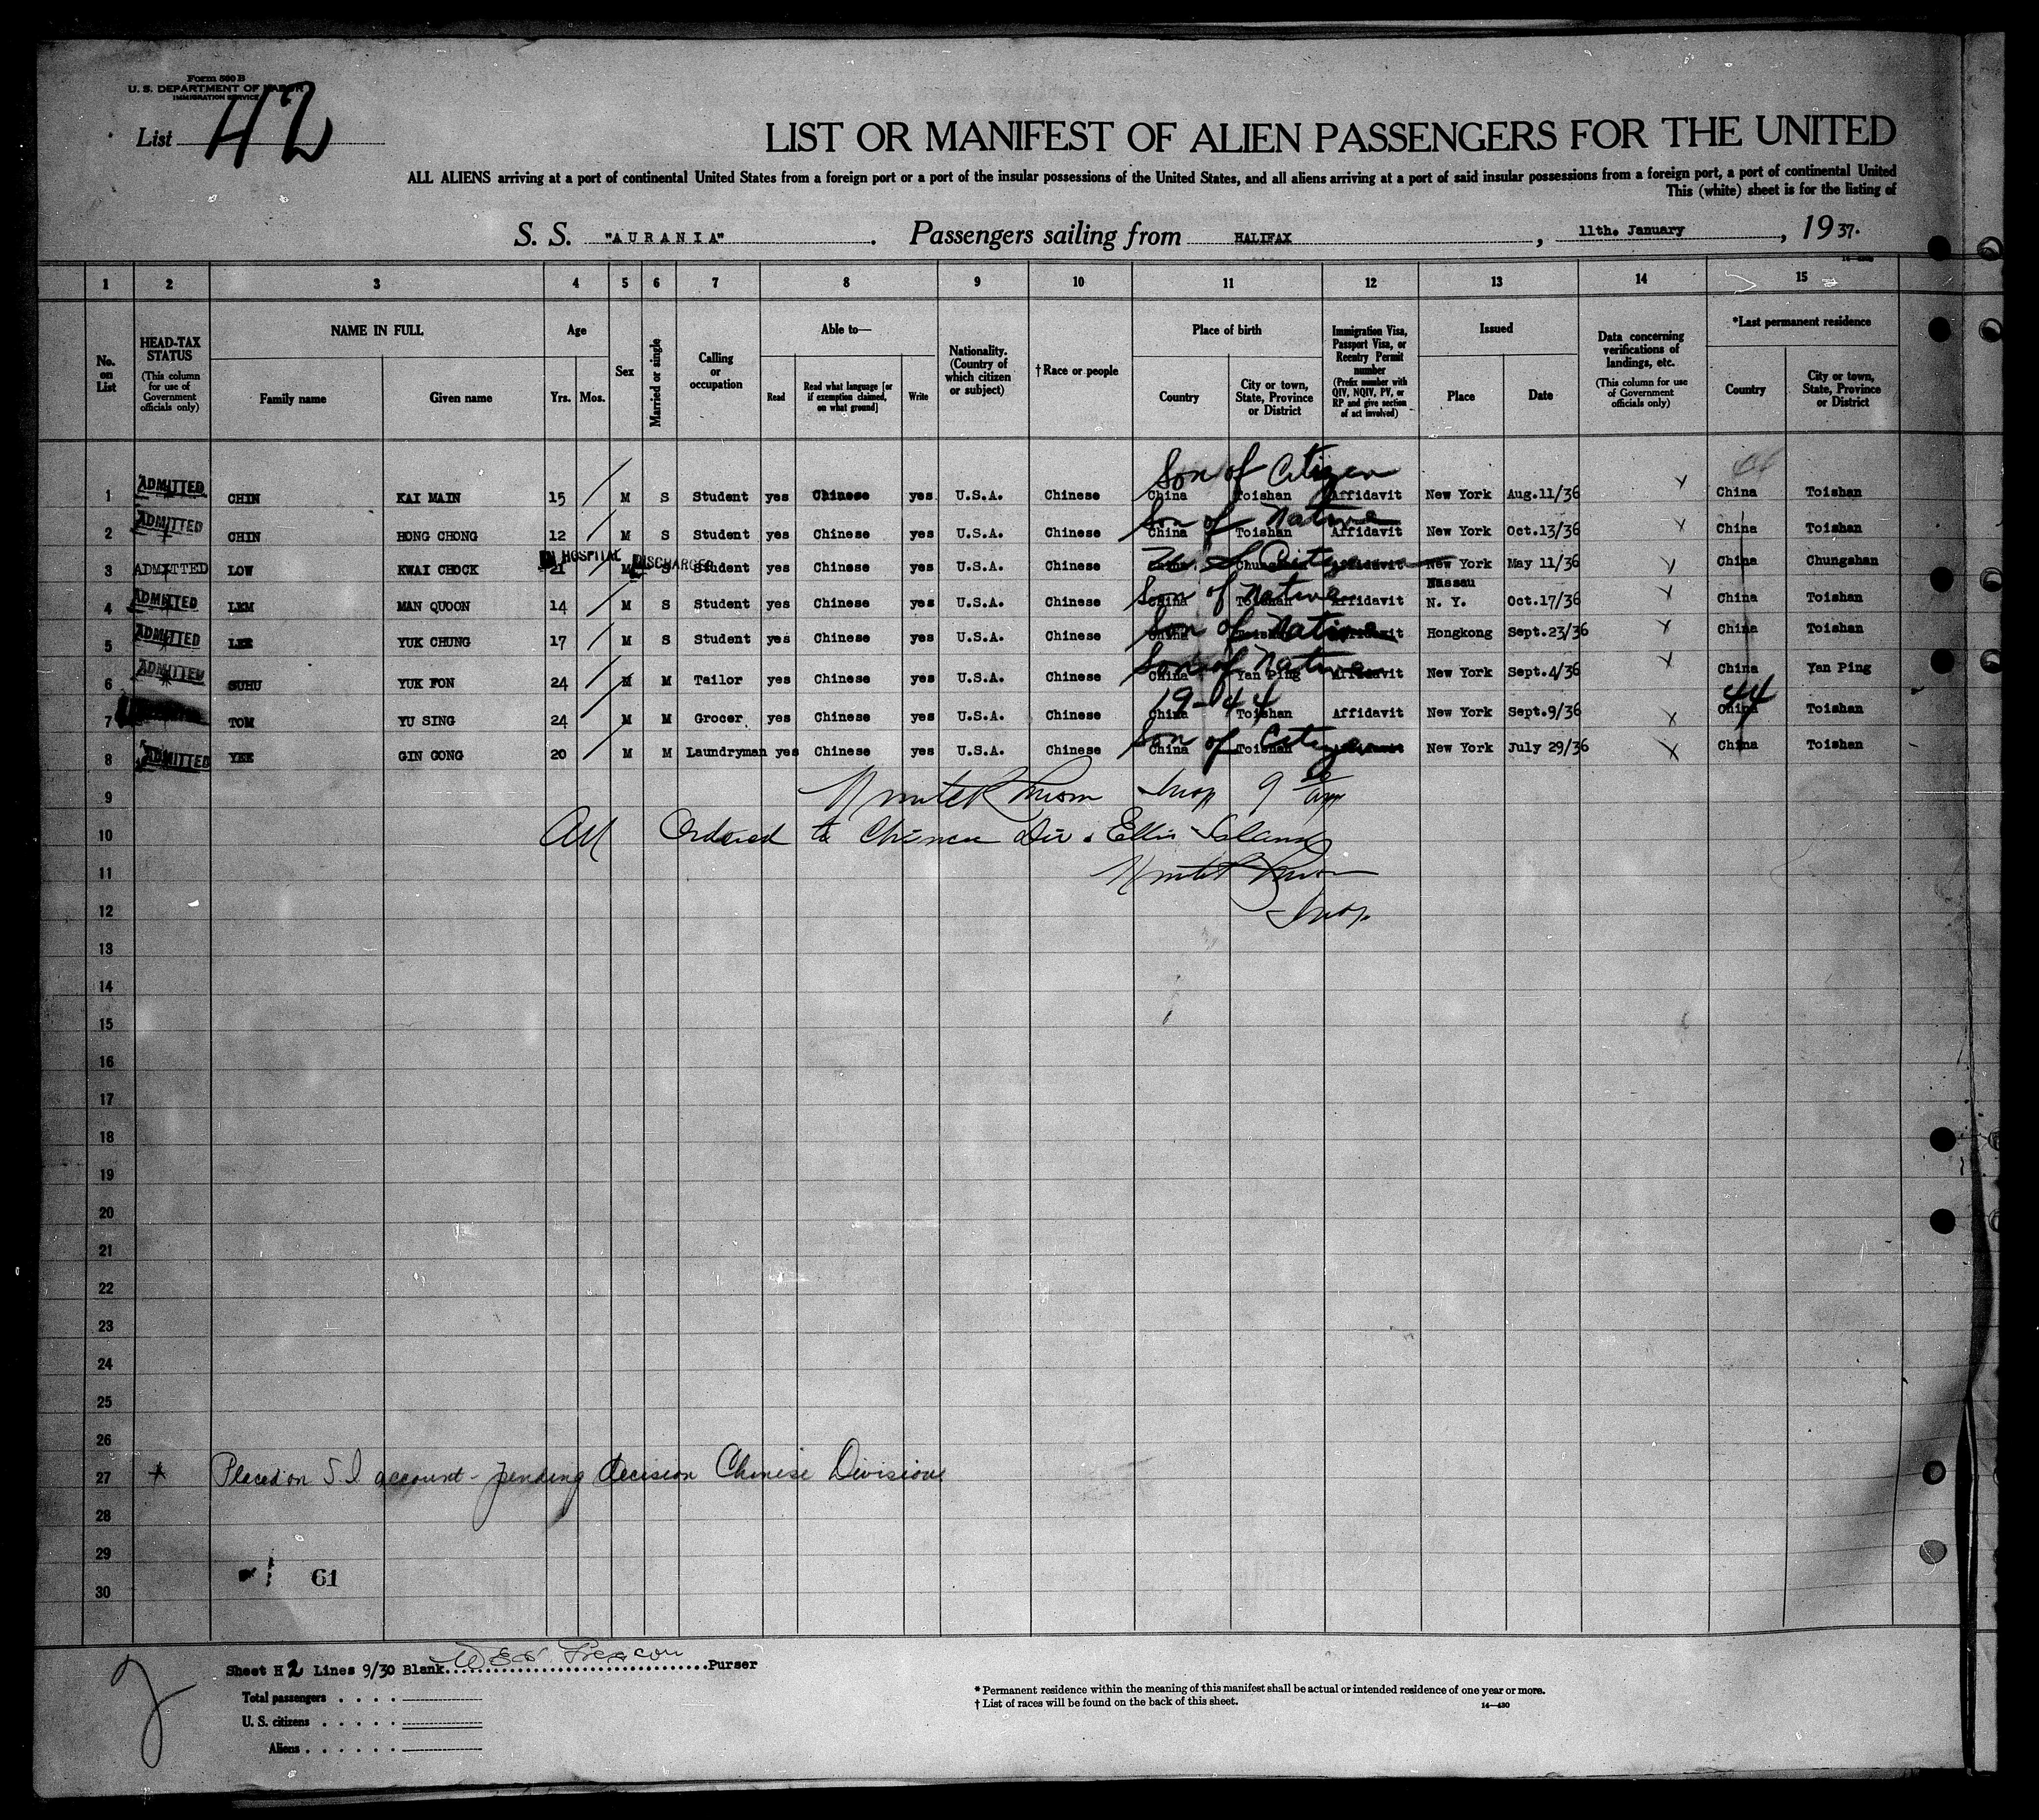 Form 500 B
U. S. DEPARTMENT OF LABOR
IMMIGRATION SERVICE
List 42
LIST OR MANIFEST OF ALIEN PASSENGERS FOR THE UNITED
ALL ALIENS arriving at a port of continental United States from a foreign port or a port of the insular possessions of the United States, and all aliens arriving at a port of said insular possessions from a foreign port, a port of continental United
This (white) sheet is for the listing of
S. S. "AURANIA" . Passengers sailing from HALIFAX , 11th. January , 19 37.
1 2 3 4 5 6 7 8 9 10 11 12 13 14 15
No. on List
HEAD-TAX STATUS (This column for use of Government officials only)
NAME IN FULL Family name Given name
Age Yrs. Mos.
Sex
Married or single
Calling or occupation
Able to— Read Read what language [or if exemption claimed, on what ground] Write
Nationality. (Country of which citizen or subject)
† Race or people
Place of birth Country City or town, State, Province or District
Immigration Visa, Passport Visa, or Reentry Permit number (Prefix number with QIV, NQIV, PV, or RP and give section of act involved)
Issued Place Date
Data concerning verifications of landings, etc. (This column for use of Government officials only)
*Last permanent residence Country City or town, State, Province or District
Son of Citizen
1 ADMITTED CHIN KAI MAIN 15 M S Student yes Chinese yes U.S.A. Chinese China Toishan Affidavit New York Aug.11/36 China Toishan
Son of Native
2 ADMITTED CHIN HONG CHONG 12 M S Student yes Chinese yes U.S.A. Chinese China Toishan Affidavit New York Oct.13/36 China Toishan
IN HOSPITAL DISCHARGED
3 ADMITTED LOW KWAI CHOCK 21 M S Student yes Chinese yes U.S.A. Chinese Chungshan Citizen Affidavit New York May 11/36 China Chungshan
Son of Native
4 ADMITTED LEM MAN QUOON 14 M S Student yes Chinese yes U.S.A. Chinese China Toishan Affidavit Nassau N. Y. Oct.17/36 China Toishan
Son of Native
5 ADMITTED LEE YUK CHUNG 17 M S Student yes Chinese yes U.S.A. Chinese China Toishan Affidavit Hongkong Sept.23/36 China Toishan
Son of Native
6 ADMITTED SUHU YUK FON 24 M M Tailor yes Chinese yes U.S.A. Chinese China Yan Ping Affidavit New York Sept.4/36 China Yan Ping
19-44 44
7 TOM YU SING 24 M M Grocer yes Chinese yes U.S.A. Chinese China Toishan Affidavit New York Sept.9/36 China Toishan
Son of Citizen
8 ADMITTED YEE GIN GONG 20 M M Laundryman yes Chinese yes U.S.A. Chinese China Toishan New York July 29/36 China Toishan
9 Insp
10 All Ordered to Chinese Div. Ellis Island
11
12 Insp.
13
14
15
16
17
18
19
20
21
22
23
24
25
26
27 * Placed on S I account - pending decision Chinese Division
28
29
30
61
Sheet H 2 Lines 9/30 Blank Purser
Total passengers
U. S. citizens
Aliens
* Permanent residence within the meaning of this manifest shall be actual or intended residence of one year or more.
† List of races will be found on the back of this sheet.
14—430